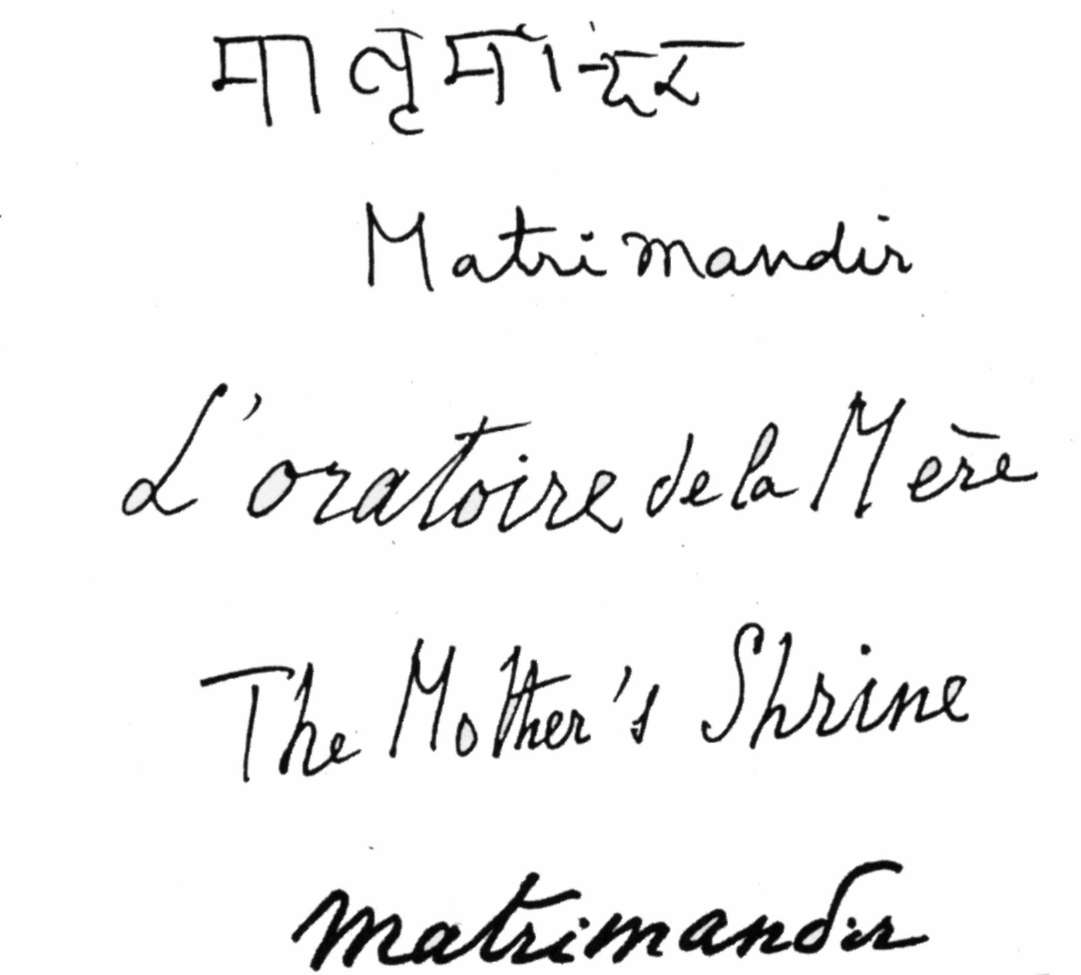 मातृमंदिर
Matrimandir
L'oratoire de la Mère
The Mother's Shrine
Matrimandir